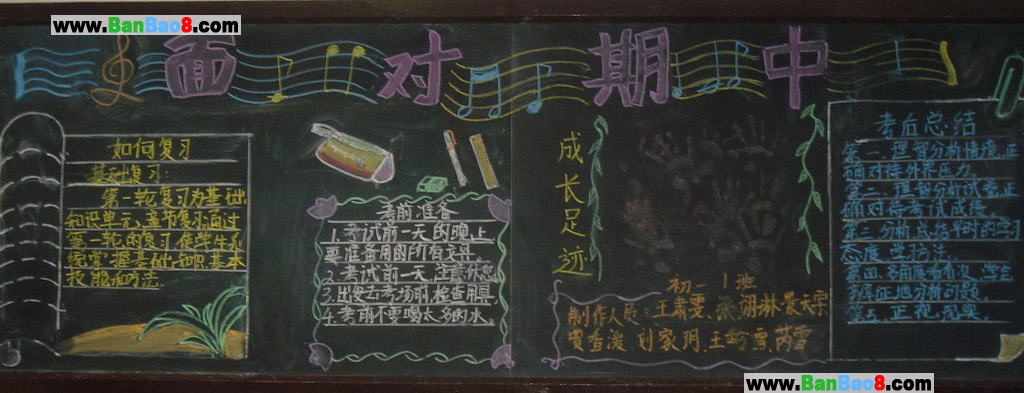 www.BanBao8.com
面对期中
如何复习
基础复习:
第一轮复习为基础
知识单元,章节复习.通过
第一轮的复习.使学生系
统掌握基础知识基本
技能和方法.
考前准备
1.考试前一天的晚上
要准备用的所有文具.
2.考试前一天.注意休息
3.出发去考场前.检查用具.
4.考前不要喝太多的水.
成长足迹
初一 1班
制作人员:王
刘家玥.王雪
考后总结
第一.理智分析情境.正
确对待外界压力.
第二.理智分析试卷.正
确对待考试成绩.
第三.分析总结平时的学习
态度.学习方法.
第四.多角度看看次.学会
分析问题.
第五.正视现实.
www.BanBao8.com